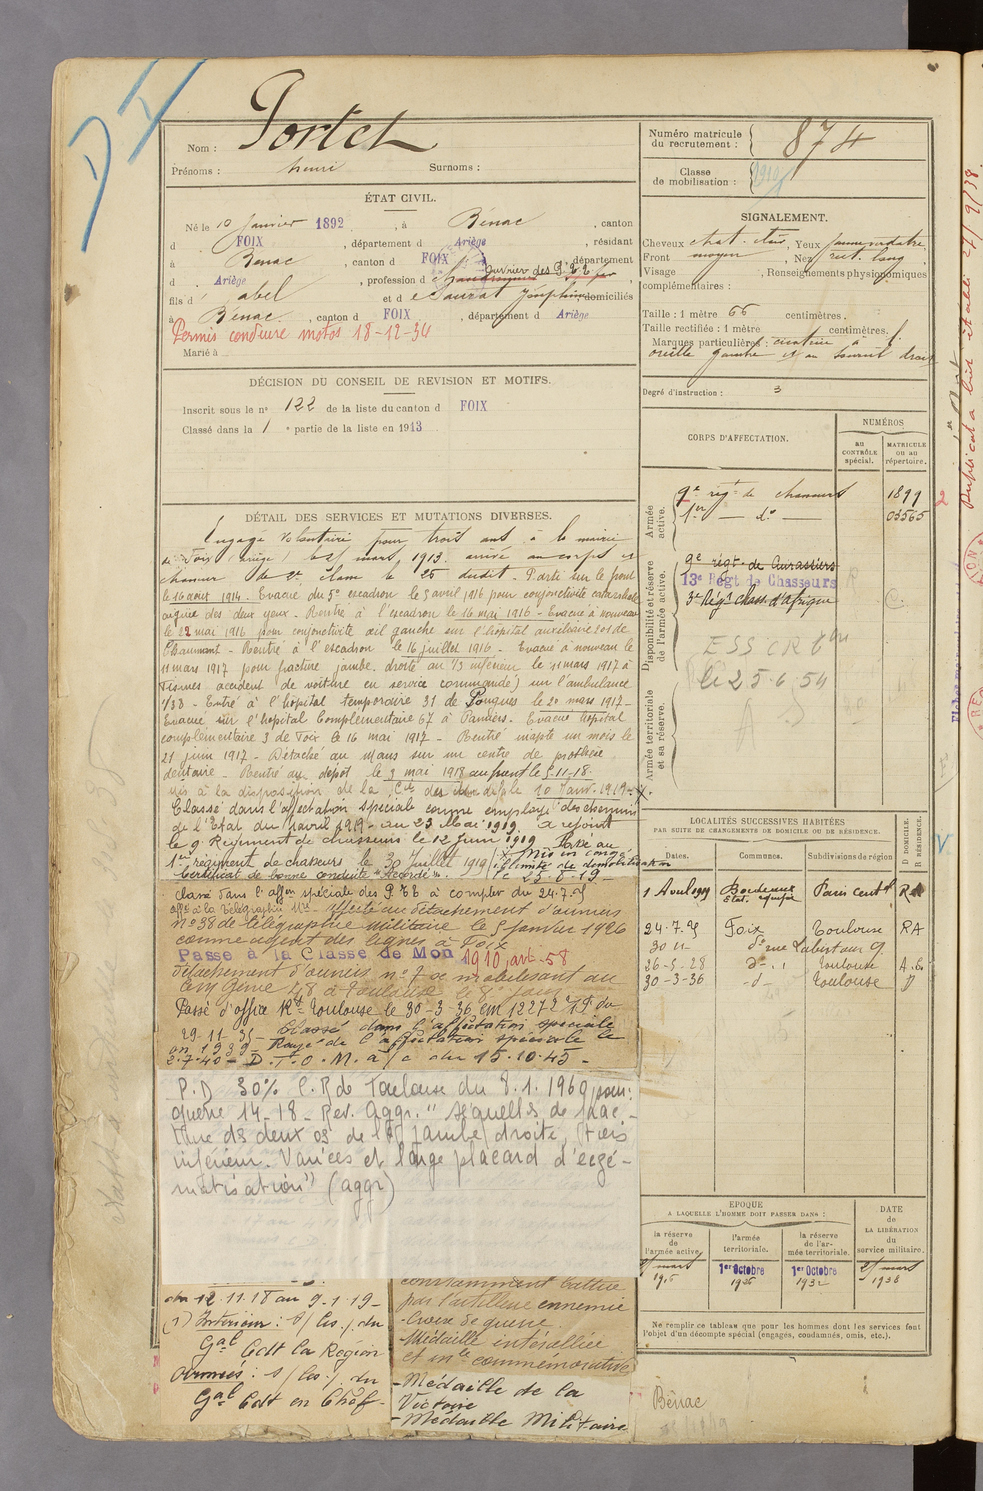 Nom : Portet
Prénoms : henri Surnoms :
Numéro matricule du recrutement : 874
Classe de mobilisation : 1910
ÉTAT CIVIL.
Né le 10 Janvier 1892, à Bénac, canton
d FOIX, département d Ariège, résidant
à Benac, canton d FOIX, département
d Ariège, profession d ouvrier des P.T.T
fils d abel et d Sauzat Joséphine domiciliés
à Bénac, canton d FOIX, département d Ariège
Permis conduire motos 18-12-34
Marié à
DÉCISION DU CONSEIL DE REVISION ET MOTIFS.
Inscrit sous le n° 122 de la liste du canton d FOIX
Classé dans la 1e partie de la liste en 1913
SIGNALEMENT.
Cheveux chat. clair, Yeux jaune verdatre
Front moyen, Nez rect. long
Visage , Renseignements physionomiques
complémentaires :
Taille : 1 mètre 66 centimètres.
Taille rectifiée : 1 mètre centimètres.
Marques particulières : cicatrice à l.
oreille gauche et au sourcil droit
Degré d'instruction : 3
CORPS D'AFFECTATION.
NUMÉROS
au CONTRÔLE spécial.
MATRICULE ou au répertoire.
Armée active.
9e régt de chasseurs 1899
1er — do — 03565
Disponibilité et réserve de l'armée active.
9e régt de Cuirassiers
13e Régt de Chasseurs R
3e Régt chass. d'Afrique C
ESS CR
le 25.6.54
Armée territoriale et sa réserve.
DÉTAIL DES SERVICES ET MUTATIONS DIVERSES.
Engagé Volontaire pour trois ans à la mairie
de Foix (ariège) le 21 mars 1913. arrivé au corps et
chasseur de 2e classe le 25 dudit. Parti sur le front
le 16 août 1914. Evacué du 5e escadron le 5 avril 1916 pour conjonctivité catarrhale
aigüe des deux yeux. Rentré à l'escadron le 16 mai 1916 - Evacué à nouveau
le 22 mai 1916 pour conjonctivité œil gauche sur l'hôpital auxiliaire 201 de
Chaumont - Rentré à l'escadron le 16 juillet 1916 - Evacué à nouveau le
11 mars 1917 pour fracture jambe droite au 1/3 inférieur le 11 mars 1917 à
Fismes accident de voiture en service commandé) sur l'ambulance
1/38 - Entré à l'hôpital temporaire 31 de Pougues le 20 mars 1917 -
Evacué sur l'hopital Complémentaire 67 à Pamiers. Evacué hôpital
complémentaire 3 de Foix le 16 mai 1917 - Rentré inapte un mois le
21 juin 1917 - Détaché au Mans sur un centre de prothèse
dentaire - Rentré au dépôt le 9 mai 1918 au front le 5-11-18.
mis à la disposition de la Cie des dep le 10 Janv. 1919
Classé dans l'affectation spéciale comme employé des chemins
de l'Etat du 1 avril 1919 - au 23 Mai 1919. a rejoint
le 9e Régiment de chasseurs le 12 Juin 1919 Passé au
1er régiment de chasseurs le 30 Juillet 1919 (Mis en congé
illimité de démobilisation
Certificat de bonne conduite "Accordé". le 25-8-19
classé dans l'affon spéciale des PTT à compter du 24.7.
affé à la Télégraphie Mre - Affecté au détachement d'ouvriers
n° 38 de télégraphie militaire le 5 Janvier 1926
comme agent des lignes à Foix
Passé à la Classe de Mon 1910, art. 58
détachement d'ouvriers n° 7
Génie 48 à Toulouse le 8
Passé d'office Rt Toulouse le 30-3-36, em 12272 1/3 du
29.11.35 - Classé dans l'affectation spéciale
en 1939 - Rayé de l'affectation spéciale le
2.7.40 - D.T.O.M. à / c du 15.10.45 -
P.D 30% C.R de Toulouse du 8.1.1960 pour:
guerre 14-18 - Rev. Aggr. "Séquelles de frac-
ture des deux os de la jambe droite, tiers
inférieur. Varices et large placard d'eczé-
matisation" (aggr)
du 12.11.18 au 9-1-19 -
(1) Intérieur : s/ les . /. du
Gal Cdt la Région
Armées : s/ les . /. du
Gal Cdt en Chef -
constamment battue
par l'artillerie ennemie
- Croix de guerre.
- Médaille intéralliée
et mle commémorative
- Médaille de la
Victoire
- Médaille Militaire
LOCALITÉS SUCCESSIVES HABITÉES
PAR SUITE DE CHANGEMENTS DE DOMICILE OU DE RÉSIDENCE.
D DOMICILE. R RÉSIDENCE.
Dates. Communes. Subdivisions de région
1 Avril 1919 Bordeaux Etat. équipe Paris Centl R
24.7. Foix Toulouse RA
30 do rue Labistour 9.
26-5-28 d° Toulouse
30-3-36 -d- Toulouse D
EPOQUE
A LAQUELLE L'HOMME DOIT PASSER DANS :
la réserve de l'armée active
l'armée territoriale.
la réserve de l'armée territoriale.
DATE de LA LIBÉRATION du service militaire.
21 mars 1916
1er Octobre 1926
1er Octobre 1932
21 mars 1938
Ne remplir ce tableau que pour les hommes dont les services font
l'objet d'un décompte spécial (engagés, condamnés, omis, etc.).
Bénac
Duplicata livt établi 27/9/38.